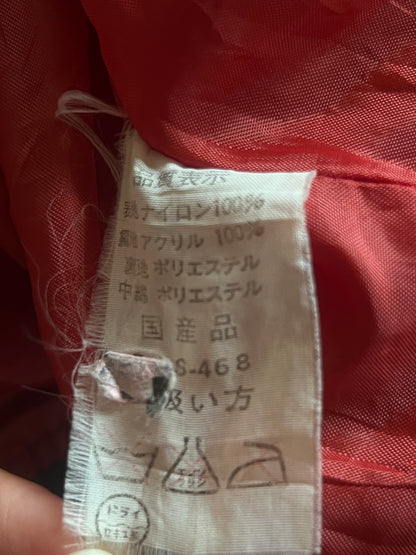 品質表示
表地 ナイロン100%
別地 アクリル 100%
裏地 ポリエステル
中綿 ポリエステル
国産品
S-468
扱い方
ドライ
セキユ系